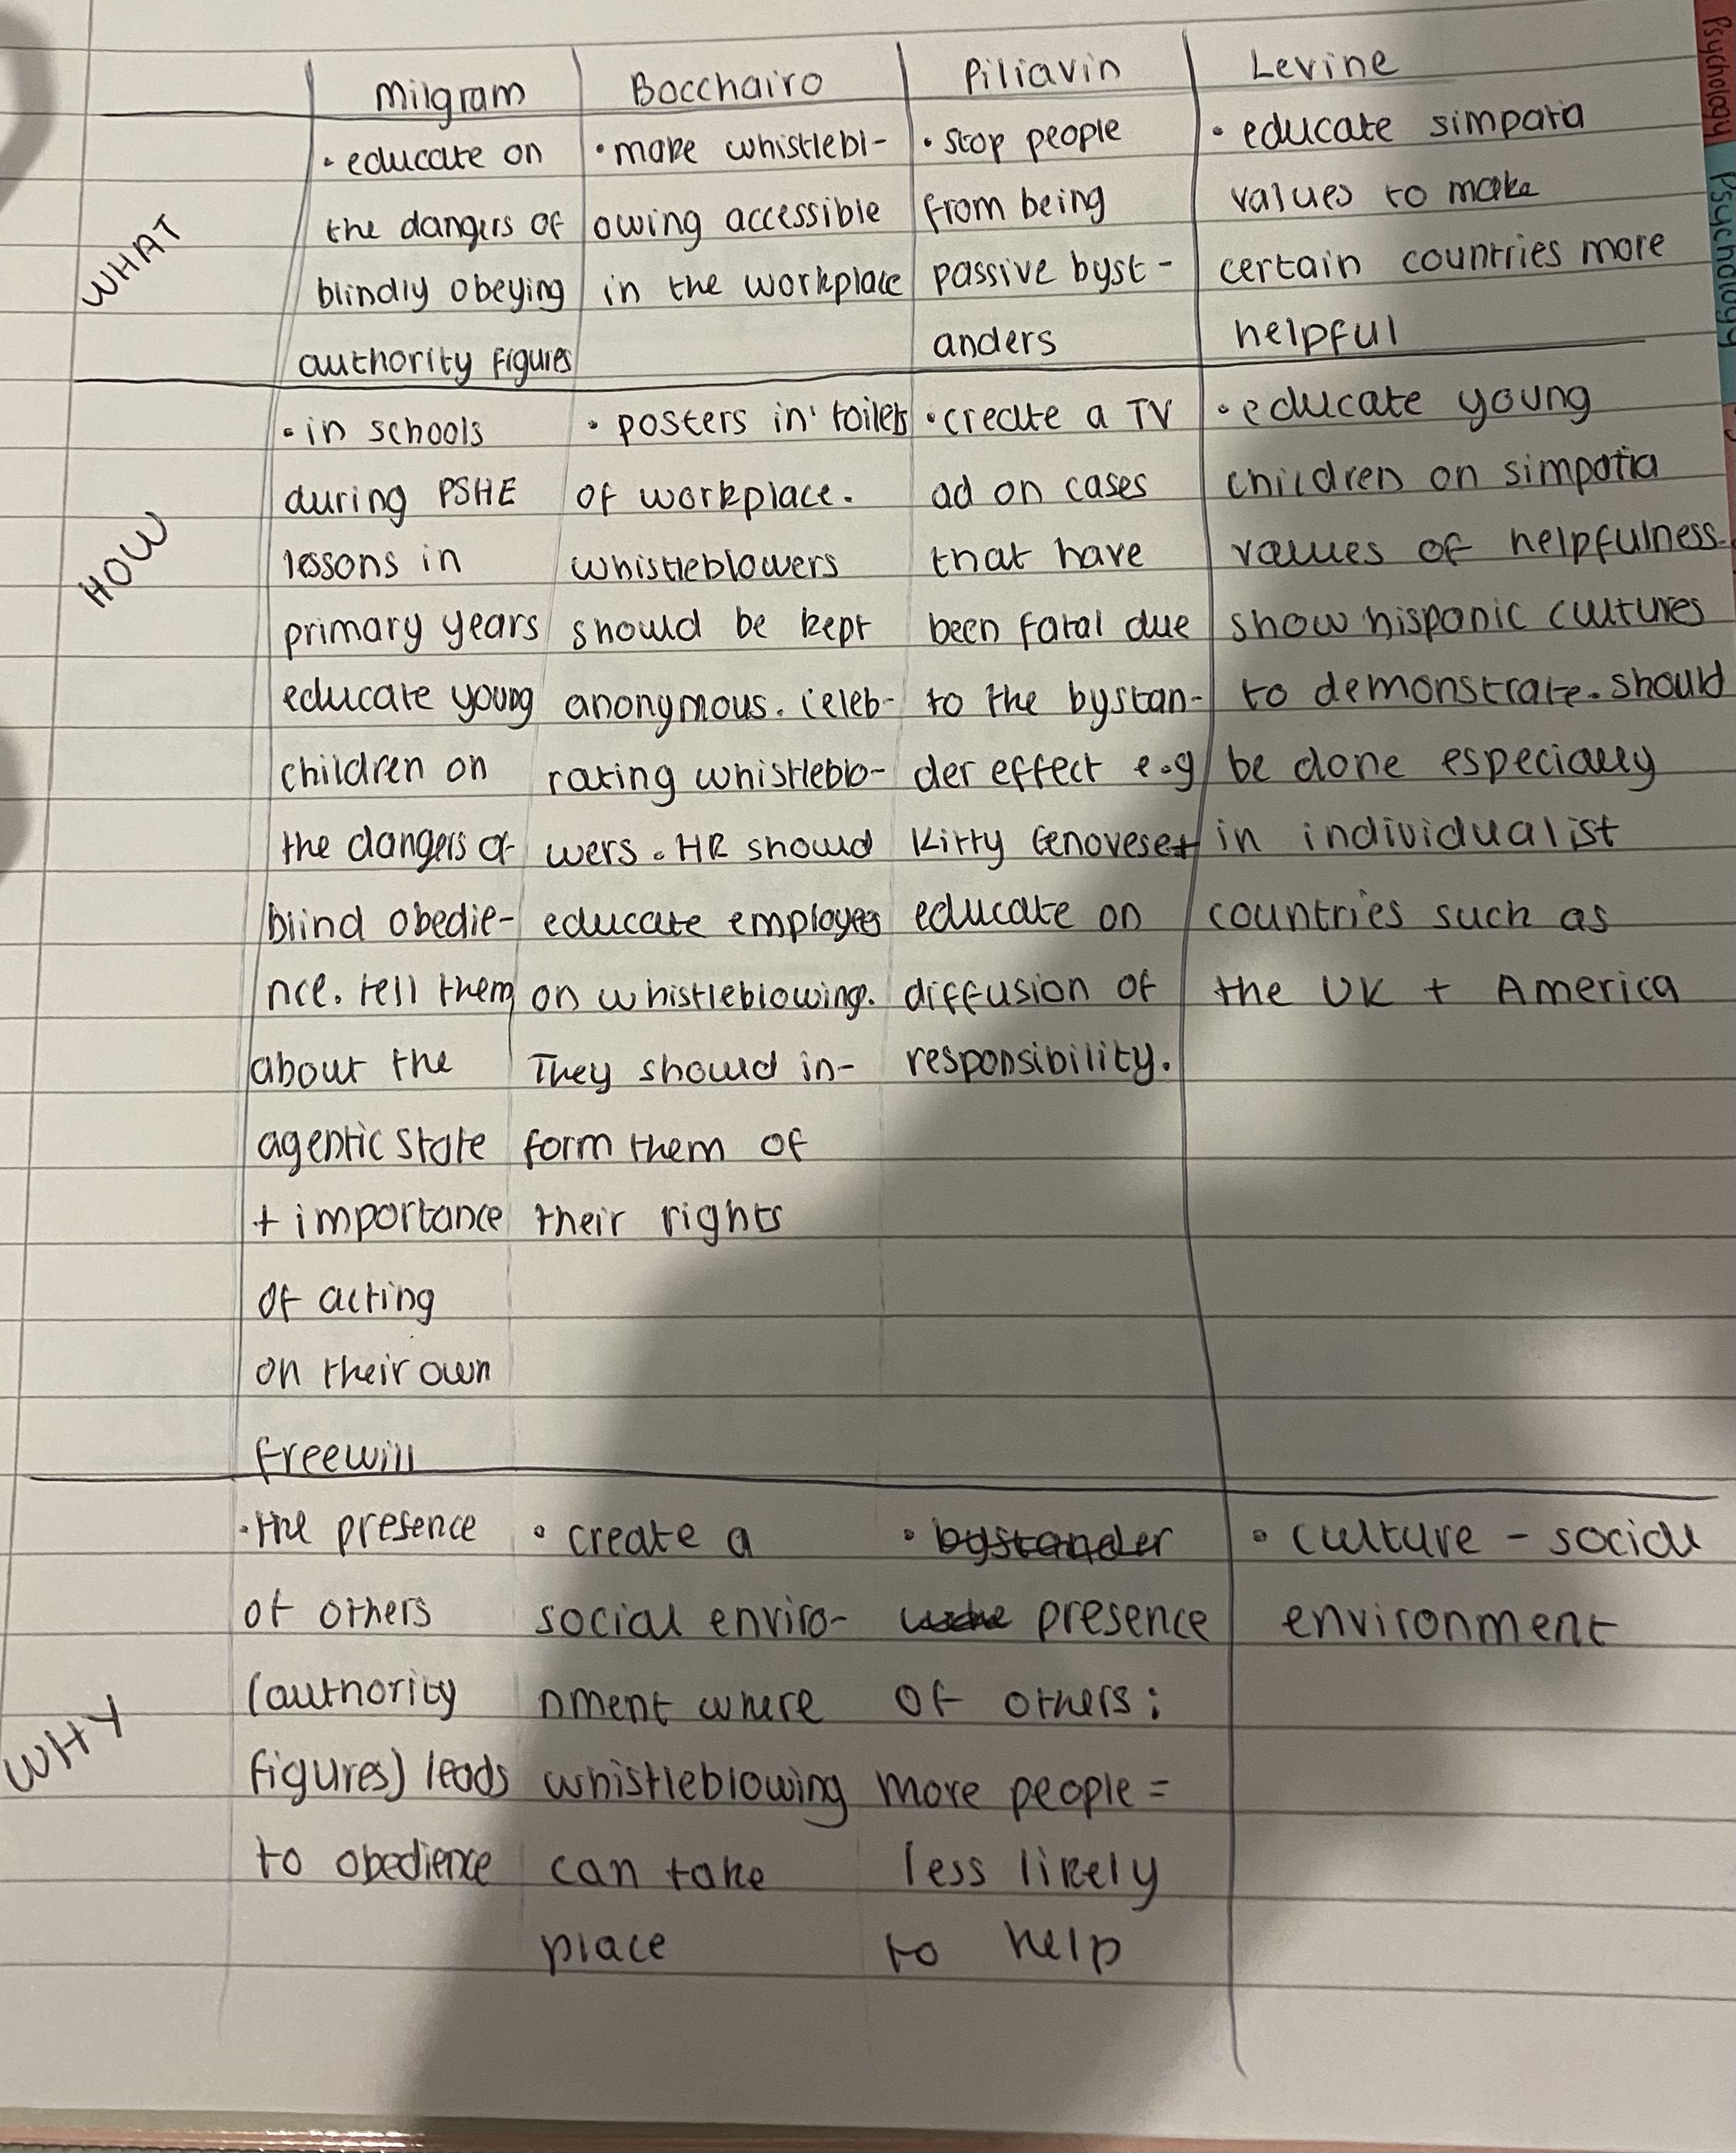 Milgram
Bocchairo
Piliavin
Levine
WHAT
• educate on
the dangers of
blindly obeying
authority figures
• make whistlebl-
owing accessible
in the workplace
• stop people
from being
passive byst-
anders
• educate simpatia
values to make
certain countries more
helpful
HOW
• in schools
during PSHE
lessons in
primary years
educate young
children on
the dangers of
blind obedie-
nce. tell them
about the
agentic state
+ importance
of acting
on their own
freewill
• posters in toilets
of workplace.
whistleblowers
should be kept
anonymous. celeb-
rating whistleblo-
wers. HR should
educate employees
on whistleblowing.
They should in-
form them of
their rights
• create a TV
ad on cases
that have
been fatal due
to the bystan-
der effect e.g
Kitty Genovese +
educate on
diffusion of
responsibility.
• educate young
children on simpatia
values of helpfulness.
show hispanic cultures
to demonstrate. should
be done especially
in individualist
countries such as
the UK + America
WHY
• the presence
of others
(authority
figures) leads
to obedience
• create a
social enviro-
nment where
whistleblowing
can take
place
• bystander
presence
of others:
more people =
less likely
to help
• culture - social
environment
Psychology
Psychology